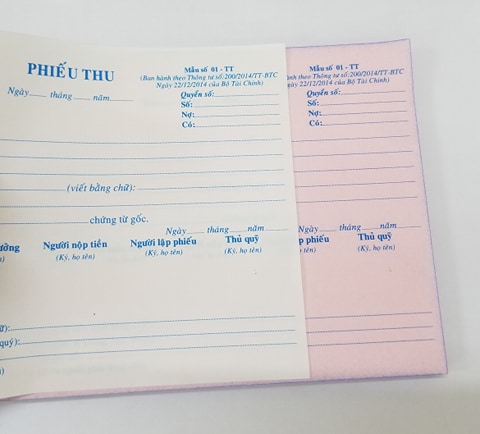 PHIẾU THU
Ngày...... tháng ...... năm............
Mẫu số 01 - TT
(Ban hành theo Thông tư số:200/2014/TT-BTC
Ngày 22/12/2014 của Bộ Tài Chính)
Quyển số:
Số:
Nợ:
Có:
(viết bằng chữ):
chứng từ gốc.
Ngày...... tháng ...... năm............
Người nộp tiền
(Ký, họ tên)
Người lập phiếu
(Ký, họ tên)
Thủ quỹ
(Ký, họ tên)
quý):
Mẫu số 01 - TT
hành theo Thông tư số:200/2014/TT-BTC
22/12/2014 của Bộ Tài Chính)
Quyển số:
Số:
Nợ:
Có:
Ngày...... tháng ...... năm............
phiếu
họ tên)
Thủ quỹ
(Ký, họ tên)